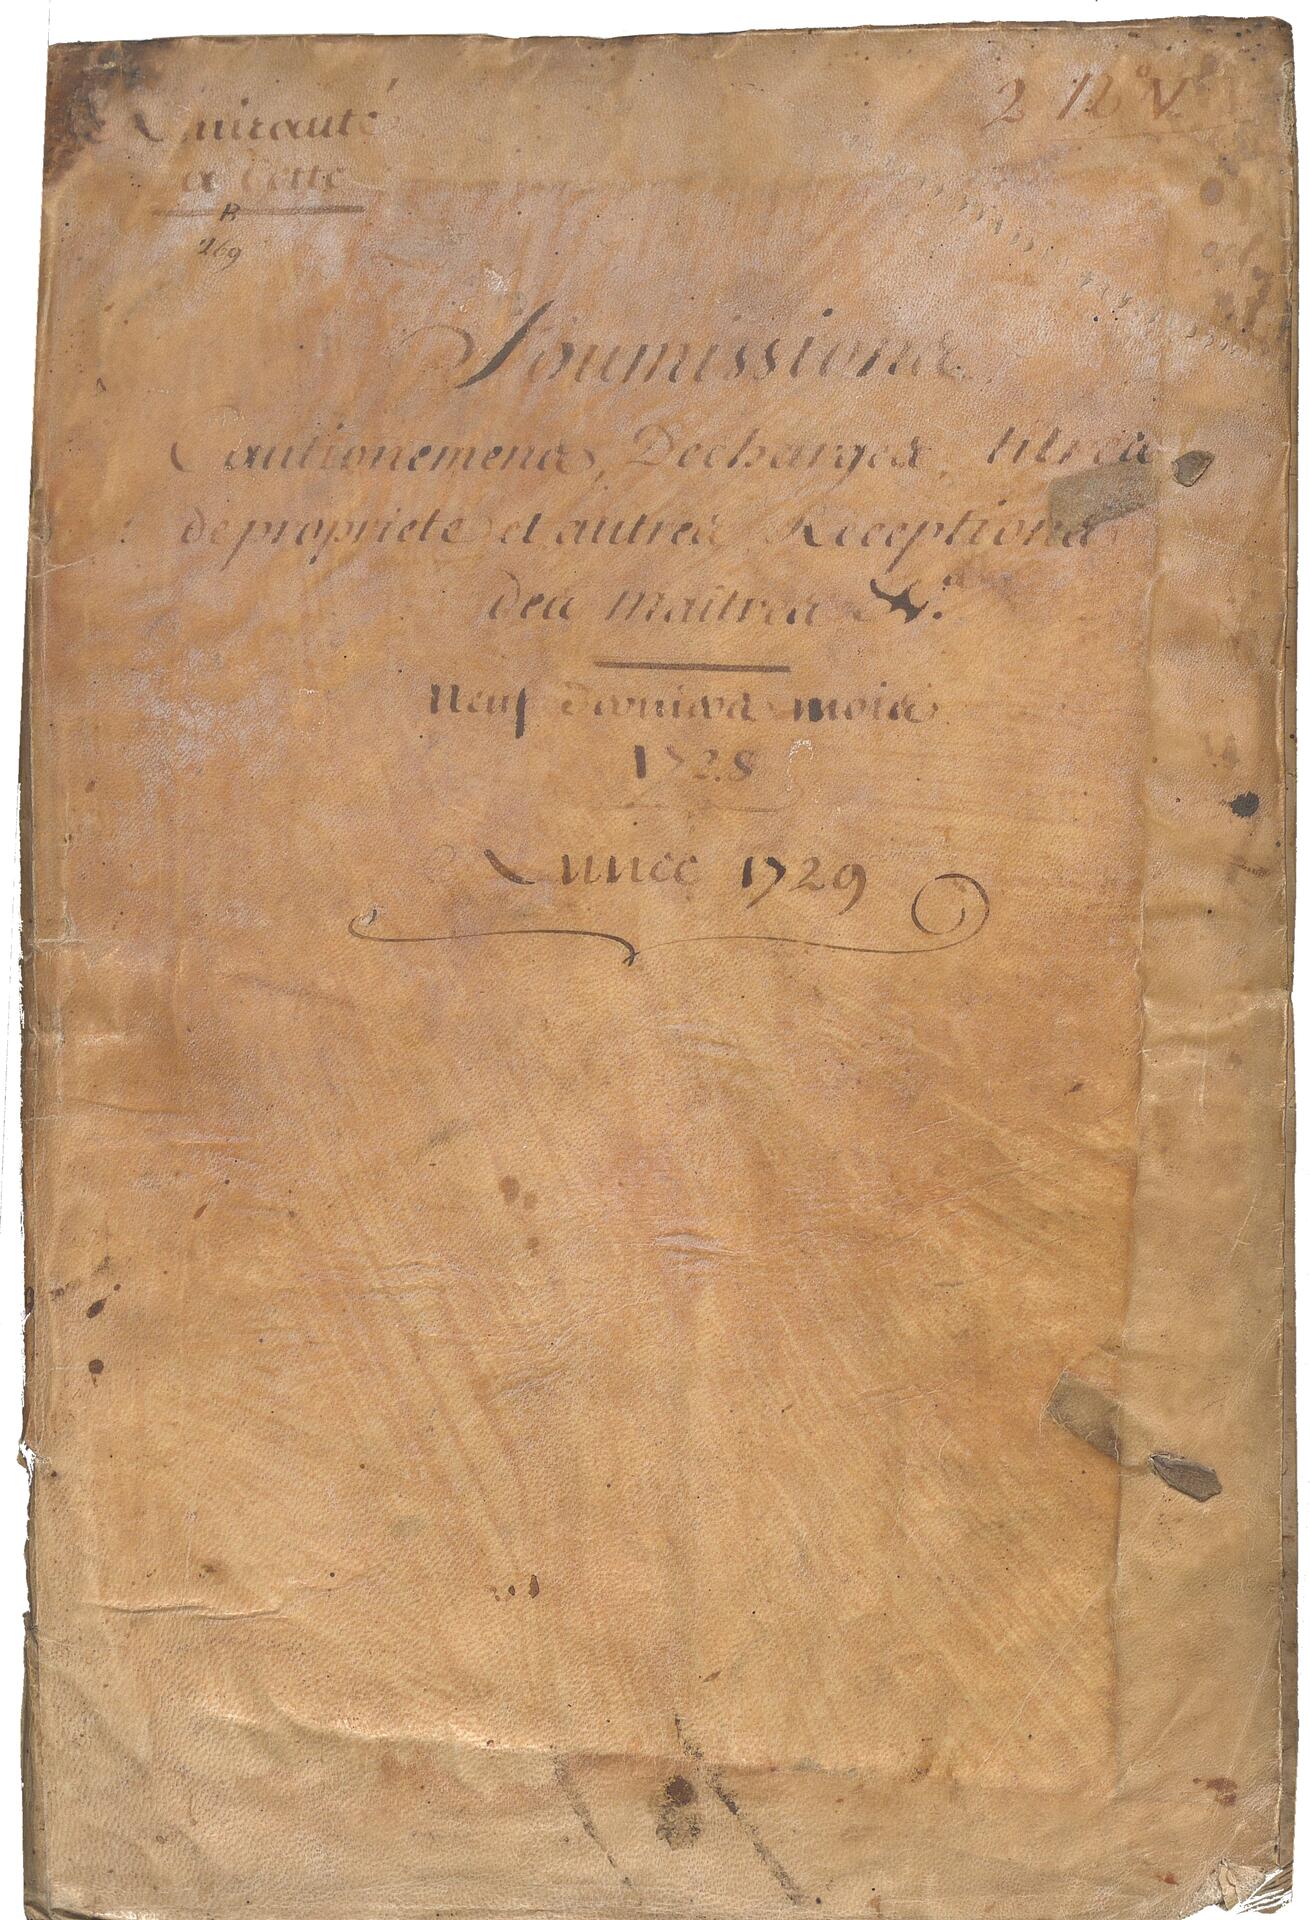 Amirauté
a Cette
B
269
2 12° V°
Soumissions
Cautionemens, Decharges, titres
de proprieté et autres Receptions
des maîtres &ᵃ.
Neuf derniers mois
1728
Année 1729